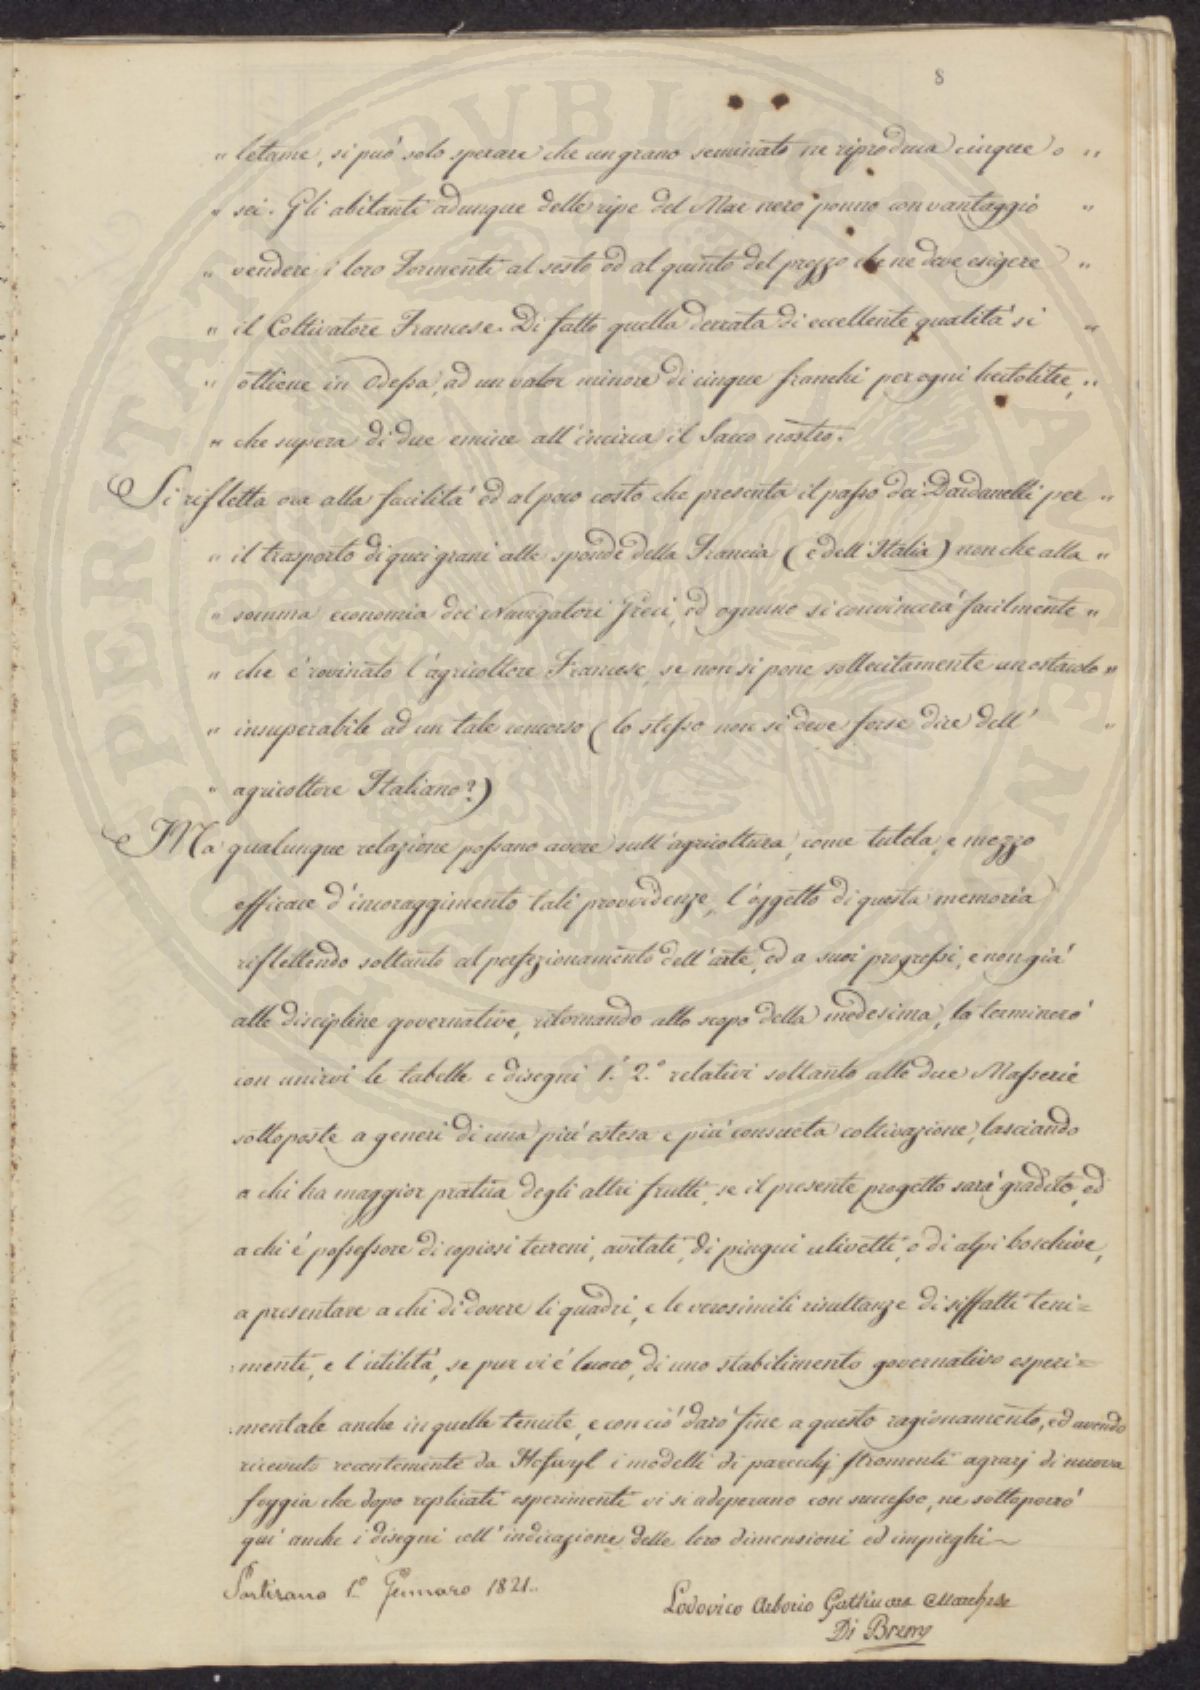 8
" letame, si può solo sperare che un grano seminato ne riproduca cinque o "
" sei. Gli abitanti adunque delle ripe del Mar nero ponno con vantaggio "
" vendere i loro Formenti al sesto od al quinto del prezzo che ne deve esigere "
" il Coltivatore Francese. Di fatto quella derrata di eccellente qualità si "
" ottiene in Odessa, ad un valor minore di cinque franchi per ogni hectolitre, "
" che supera di due emine all'incirca il Sacco nostro.
Si rifletta ora alla facilità od al poco costo che presenta il passo dei Dardanelli per "
" il trasporto di quei grani alle sponde della Francia (e dell'Italia) non che alla "
" somma economia dei Navigatori Greci, ed ognuno si convincerà facilmente "
" che è rovinato l'agricoltore Francese, se non si pone sollecitamente un ostacolo "
" insuperabile ad un tale concorso (lo stesso non si deve forse dire dell' "
" agricoltore Italiano?)
Ma qualunque relazione possano avere sull'agricoltura, come tutela, e mezzo
efficace d'incoraggimento tali provvidenze, l'oggetto di questa memoria
riflettendo soltanto al perfezionamento dell'arte, ed a suoi progressi, e non già
alle discipline governative, ritornando allo scopo della medesima, la terminerò
con unirvi le tabelle e disegni 1.° 2.° relativi soltanto alle due Masserie
sottoposte a generi di una più estesa e più consueta coltivazione, lasciando
a chi ha maggior pratica degli altri frutti, se il presente progetto sarà gradito, ed
a chi è possessore di copiosi terreni, avitati, di pingui ulivetti, o di alpi boschive,
a presentare a chi di dovere li quadri, e le verosimili risultanze di siffatti teni=
menti, e l'utilità, se pur vi è luoco, di uno stabilimento governativo esperi=
mentale anche in quelle tenute, e con ciò darò fine a questo ragionamento, ed avendo
ricevuto recentemente da Hofwyl i modelli di parecchj stromenti agrarj di nuova
foggia che dopo replicati esperimenti vi si adoperano con successo, ne sottoporrò
qui anche i disegni coll'indicazione delle loro dimensioni ed impieghi
Sartirana 1.° Gennaro 1821.
Lodovico Arborio Gattinara Marchese
Di Breme
PUBLICAE